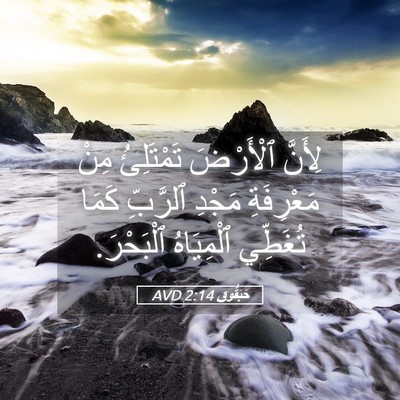 لِأَنَّ ٱلْأَرْضَ تَمْتَلِئُ مِنْ
مَعْرِفَةِ مَجْدِ ٱلرَّبِّ كَمَا
تُغَطِّي ٱلْمِيَاهُ ٱلْبَحْرَ.
حَبَقُّوقَ 2:14 AVD